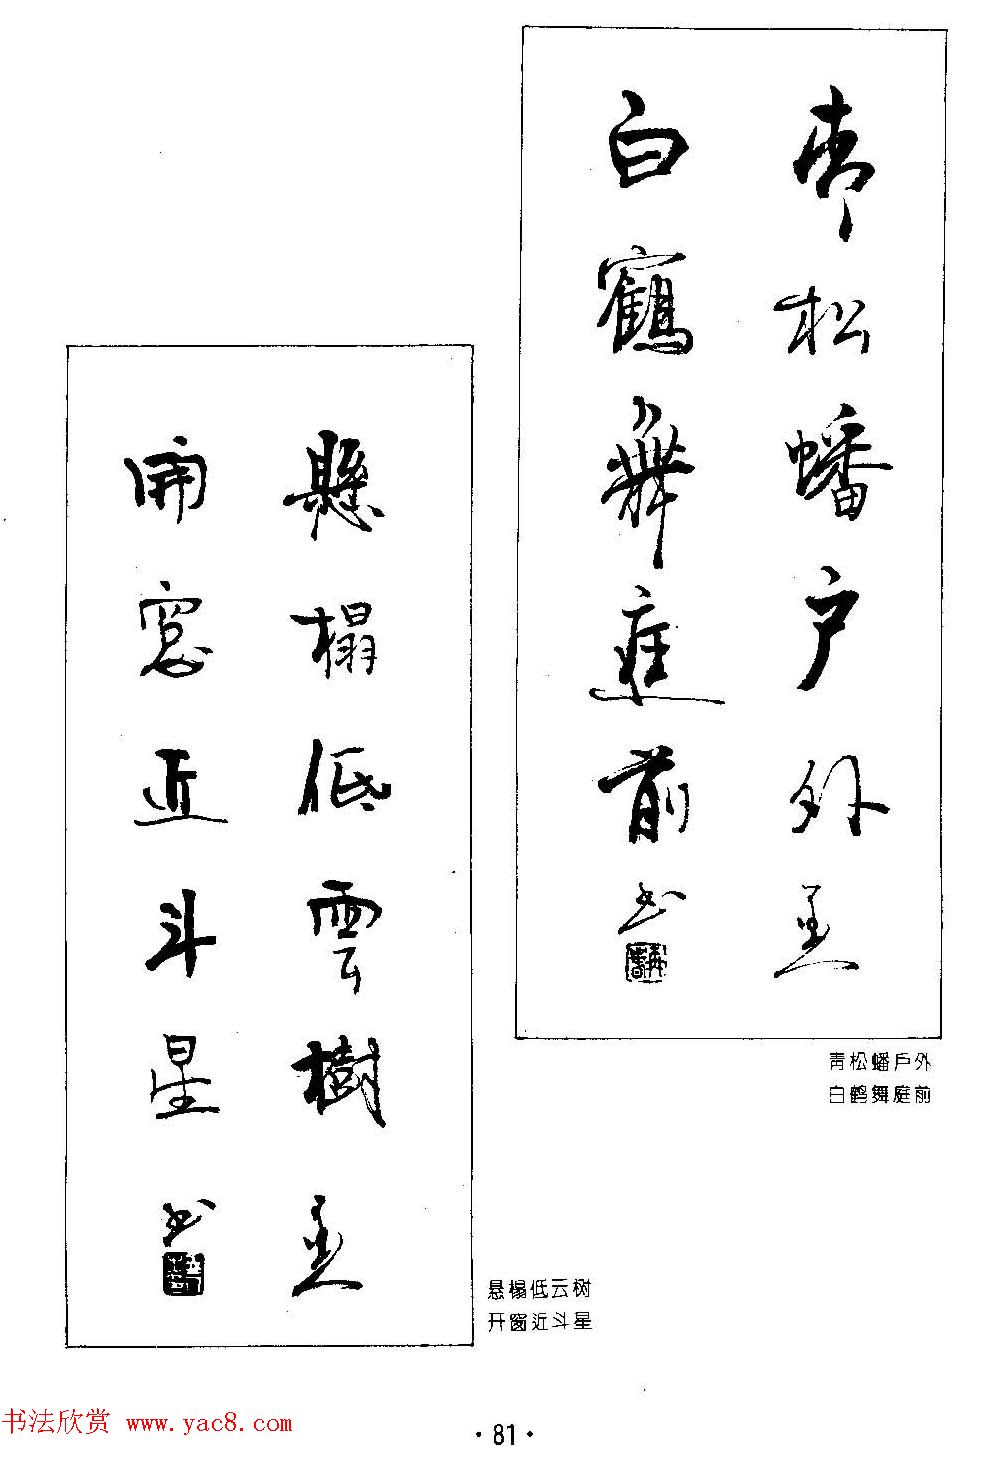 青松蟠户外
白鶴舞庭前
书
青松蟠戶外
白鹤舞庭前
懸榻低雲樹
開窓近斗星
书
悬榻低云树
开窗近斗星
书法欣赏 www.yac8.com
·81·